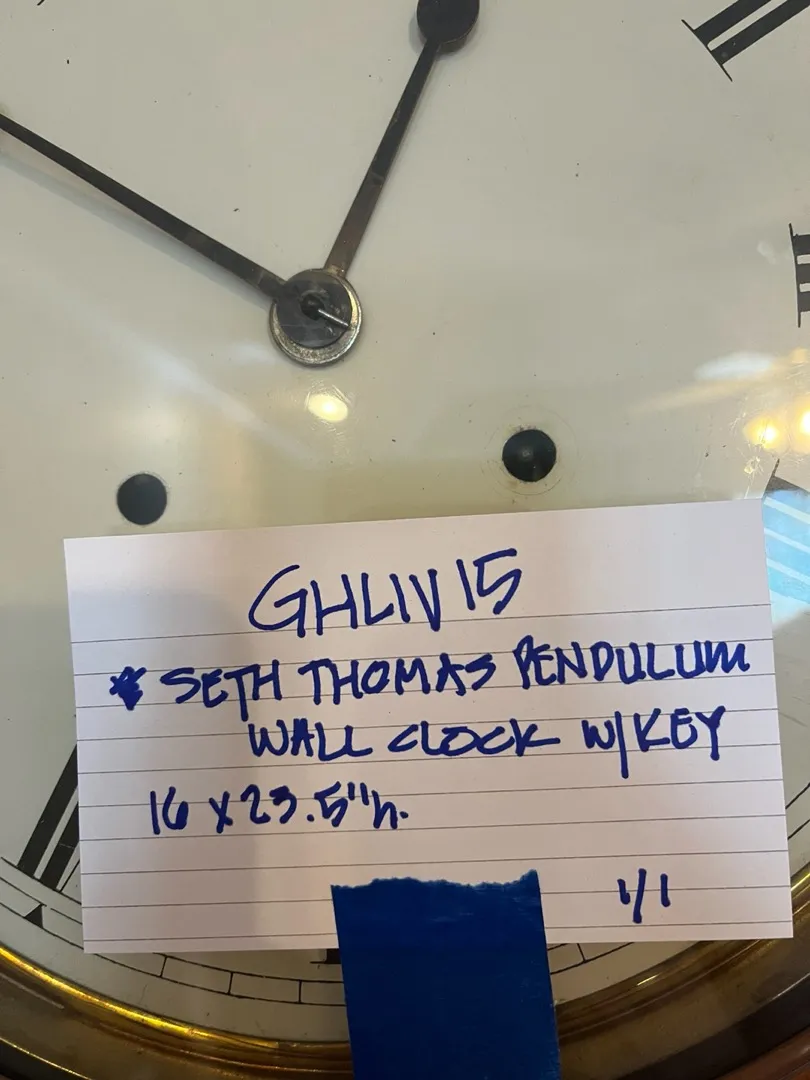 GHLIV15
* SETH THOMAS PENDULUM
WALL CLOCK W/KEY
16 x 23.5"h.
1/1